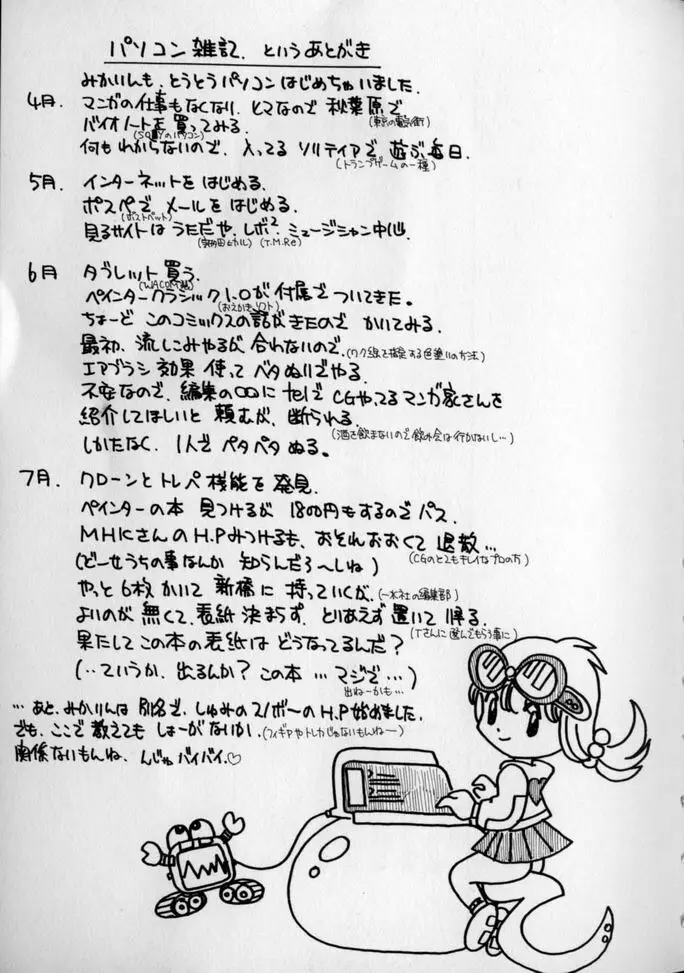 パソコン雑記、というあとがき
みかりんも、とうとうパソコンはじめちゃいました。
4月. マンガの仕事もなくなり、ヒマなので 秋葉原で
(東京の電気街)
バイオノートを買ってみる.
(SONYのパソコン)
何もわからないので、入ってる ソリティアで 遊ぶ毎日.
(トランプゲームの一種)
5月. インターネットを はじめる.
ポスペで メールを はじめる.
(ポストペット)
見るサイトは うただや、レボ2 ミュージシャン中心.
(宇多田ヒカル) (T.M.Re)
6月 タブレット買う.
(WACOM製)
ペインタークラシック1.0が 付属で ついてきた。
(おえかきソフト)
ちょーど このコミックスの話がきたので かいてみる.
最初、流しこみやるが 合わないので.(ワク線で指定する色塗りの方法)
エアブラシ 効果 使って ベタぬりでやる.
不安なので、編集の○○に telで CGやってるマンガ家さんを
紹介してほしいと 頼むが、断られる.
(酒を飲まないので飲み会は行かないし…)
しかたなく、1人で ペタペタ ぬる。
7月. クローンと トレペ 機能を 発見.
ペインターの本 見つけるが 1800円もするので パス.
MHKさんのH.Pみつけるも、おそれおおくて 退散…
(CGのとてもキレイなプロの方)
(どーせうちの事なんか 知らんだろ〜しね)
やっと 6枚 かいて 新橋に 持っていくが、(一水社の編集部)
よいのが 無くて、表紙 決まらず、とりあえず 置いて 帰る.
(Tさんに選んでもらう事に)
果たして この本の表紙は どうなってるんだ？
(‥ていうか、出るんか？ この本 … マジで …)
出ねーかも…
… あと、みかりんは 別名で、しゅみのスノボーのH.P始めました.
でも、ここで 教えても しょーがないか.(フィギアやトレカじゃないもんねー)
関係ないもんね、んじゃ バイバイ.♡